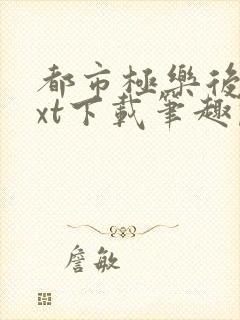 都市極樂後
xt下載筆趣
詹敏